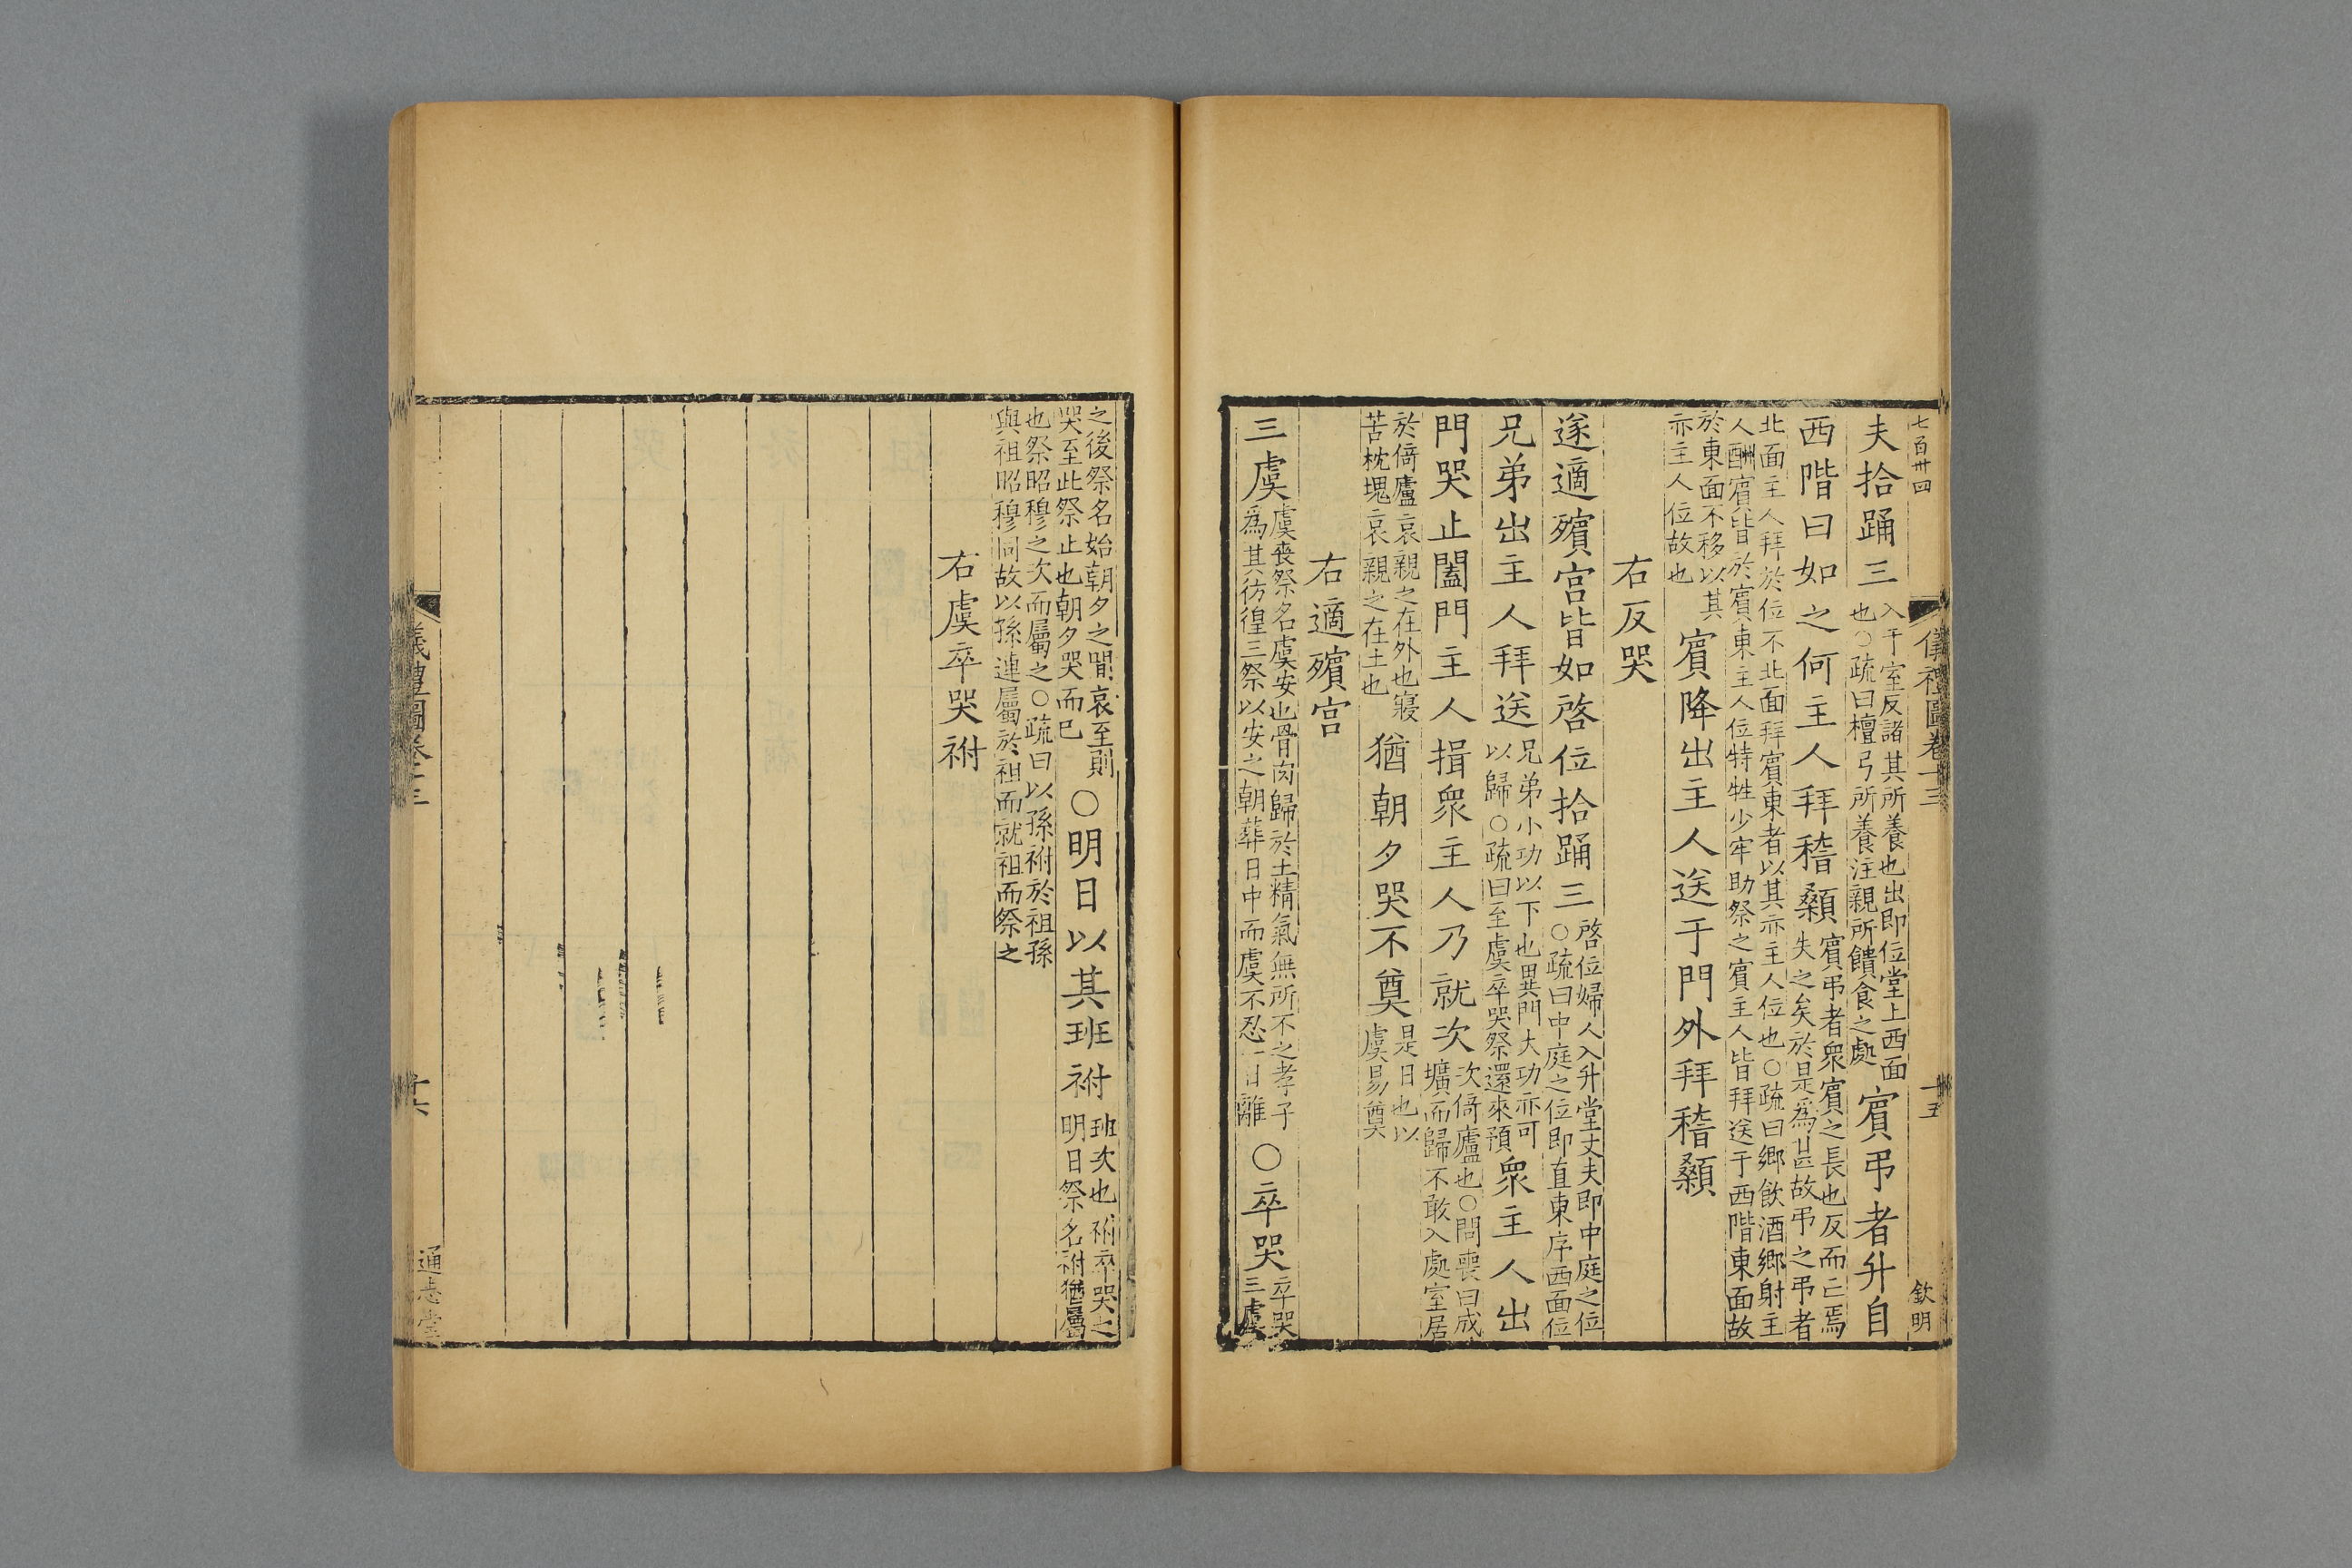 七百卌四
儀禮圖卷十三
十五
欽明
夫拾踊三入于室反諸其所養也出即位堂上西面
也○疏曰檀弓所養注親所饋食之處賓弔者升自
西階曰如之何主人拜稽顙賓弔者眾賓之長也反而亡焉
失之矣於是為甚故弔之弔者
北面主人拜於位不北面拜賓東者以其亦主人位也○疏曰鄉飲酒鄉射主
人酬賓皆於賓東主人位特牲少牢助祭之賓主人皆拜送于西階東面故
於東面不移以其
亦主人位故也賓降出主人送于門外拜稽顙
右反哭
遂適殯宫皆如啓位拾踊三啓位婦人入升堂丈夫即中庭之位
○疏曰中庭之位即直東序西面位
兄弟出主人拜送兄弟小功以下也異門大功亦可
以歸○疏曰至虞卒哭祭還來預眾主人出
門哭止闔門主人揖眾主人乃就次次倚廬也○問喪曰成
壙而歸不敢入處室居
於倚廬哀親之在外也寢
苫枕塊哀親之在土也猶朝夕哭不奠是日也以
虞易奠
右適殯宫
三虞虞喪祭名虞安也骨肉歸於土精氣無所不之孝子
為其彷徨三祭以安之朝葬日中而虞不忍一日離○卒哭卒哭
三虞
之後祭名始朝夕之間哀至則
哭至此祭止也朝夕哭而已○明日以其班祔班次也祔卒哭之
明日祭名祔猶屬
也祭昭穆之次而屬之○疏曰以孫祔於祖孫
與祖昭穆同故以孫連屬於祖而就祖而祭之
右虞卒哭祔
儀禮圖卷十三
十六
通志堂